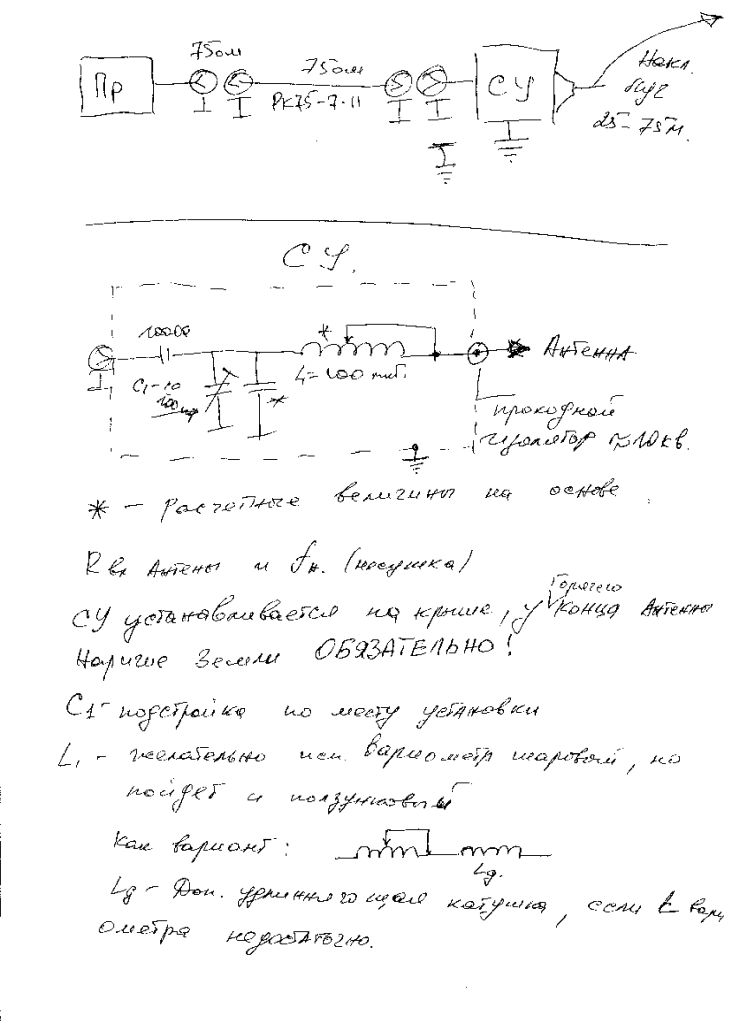 75 ом
75 ом
Пр
РК75-7-11
СУ
Накл.
луч
25-75 м.
СУ.
10000
*
С1-10
100 пф
*
L=100 мкГ.
Антенна
проходной
изолятор ≈10кв.
* - расчетные величины на основе
R вх Антены и fн. (несушка)
Горячего
СУ устанавливается на крыше, у конца Антенны
Наличие Земли ОБЯЗАТЕЛЬНО!
С1- подстройка по месту установки
L1 - желательно исп. вариометр шаровой, но
пойдет и ползунковый
Как вариант:
Lд.
Lд - Доп. удлинняющая катушка, если L вари
ометра недостаточно.